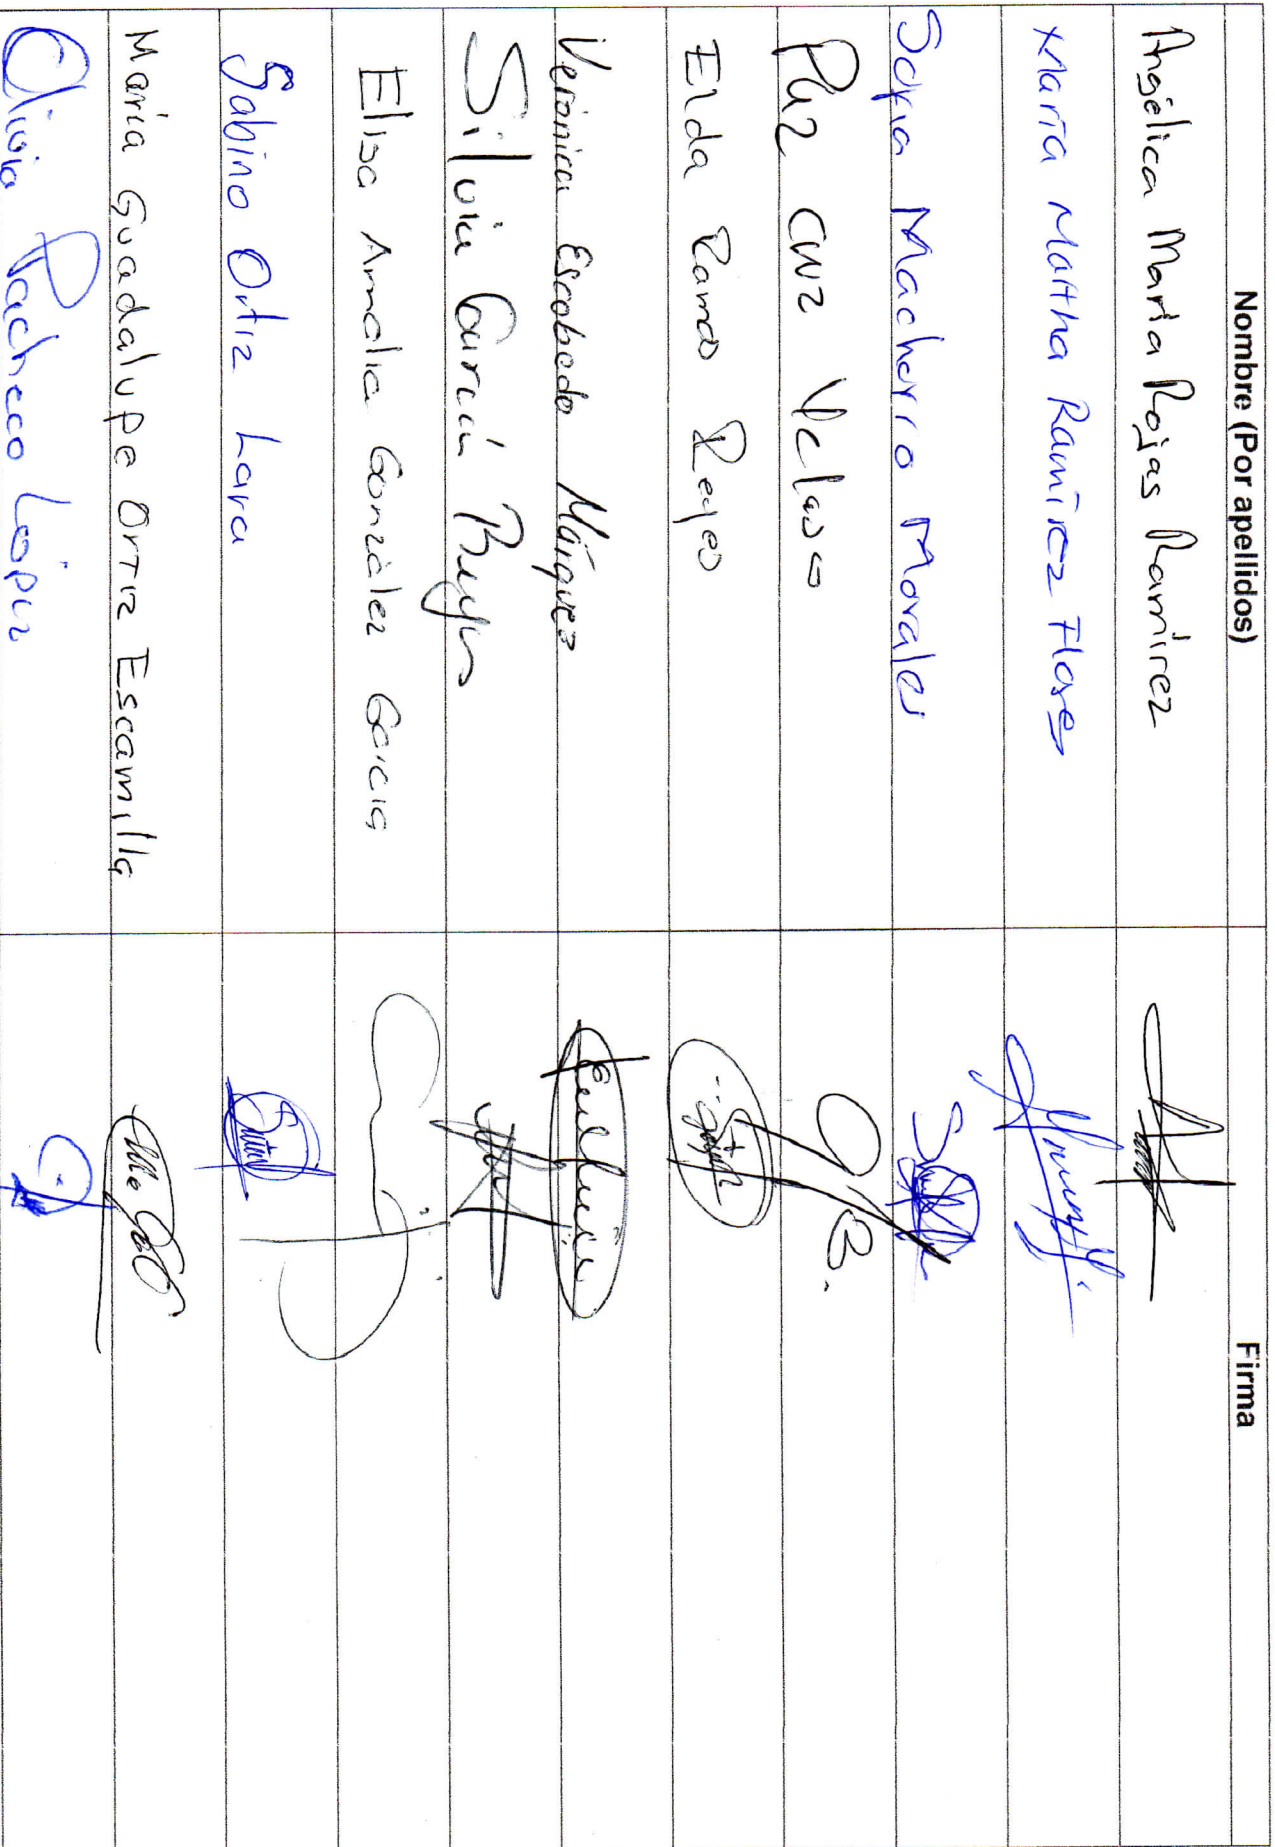 Nombre (Por apellidos) Firma
Angélica María Rojas Ramírez
María Martha Ramírez Flores
Sofia Machorro Morales
Paz Cruz Velasco
Elda Ramos Reyes
Verónica Escobedo Márquez
Silvia García Reyes
Elisa Amalia González García
Sabino Ortiz Lara
María Guadalupe Ortiz Escamilla
Olivia Pacheco López